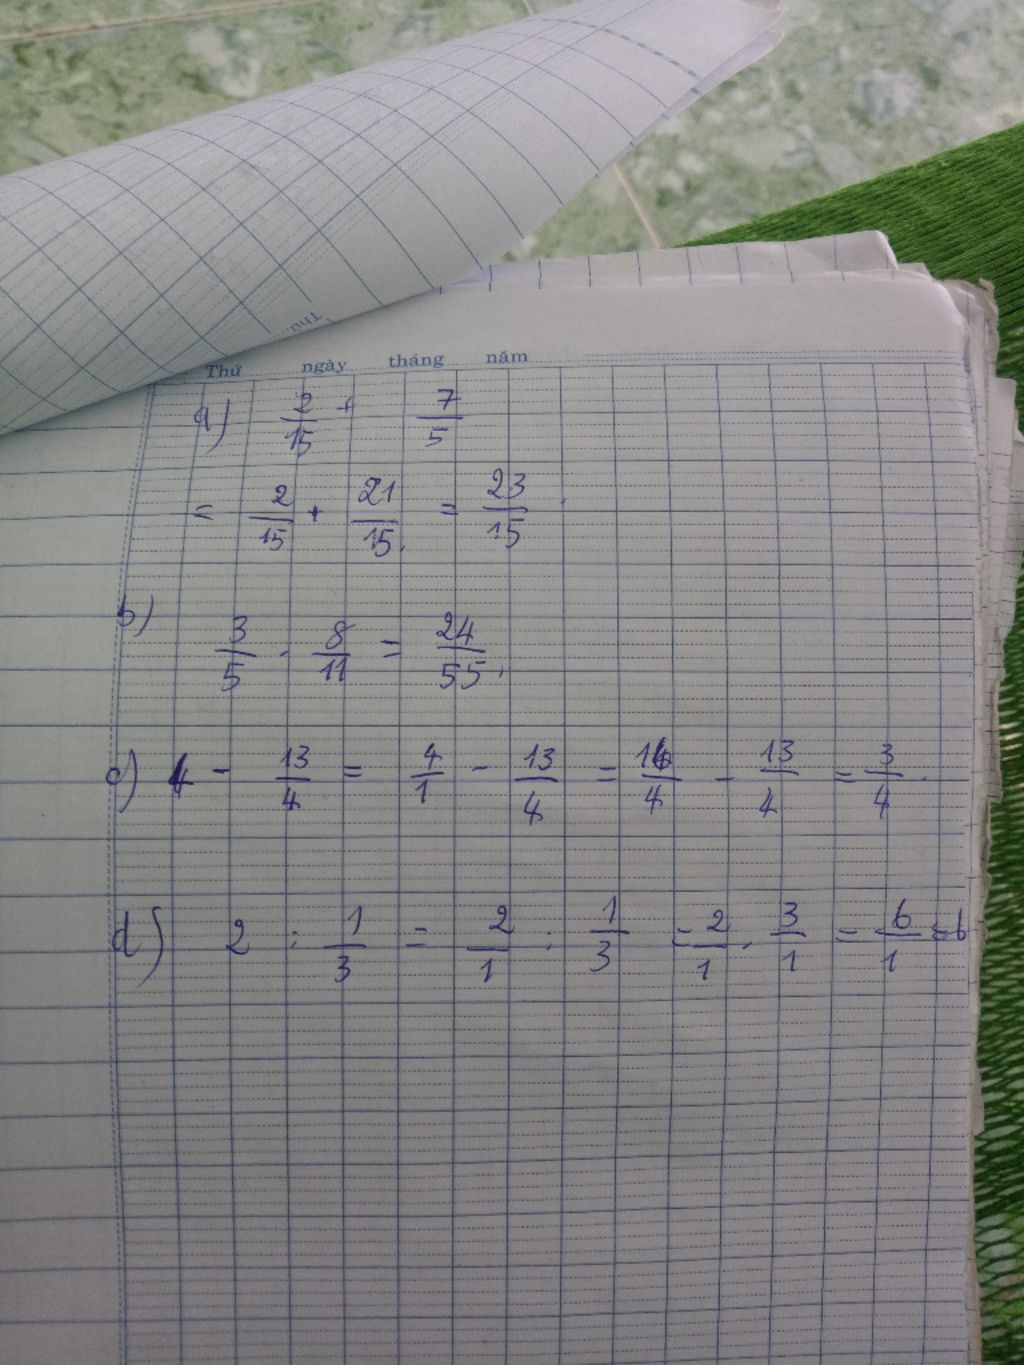 Thứ ngày tháng năm
a) 2/15 + 7/5
= 2/15 + 21/15 = 23/15
b) 3/5 . 8/11 = 24/55
c) 4 - 13/4 = 4/1 - 13/4 = 16/4 - 13/4 = 3/4
d) 2 : 1/3 = 2/1 : 1/3 = 2/1 . 3/1 = 6/1 = 6